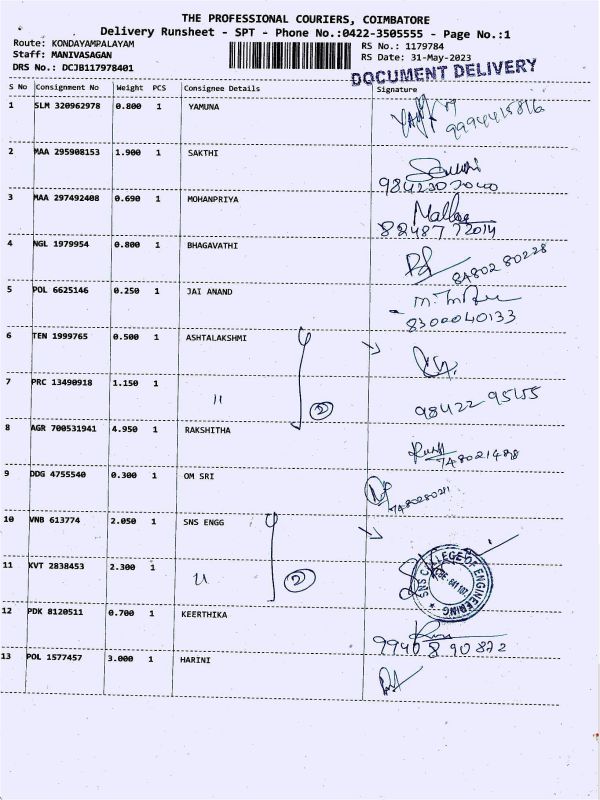 THE PROFESSIONAL COURIERS, COIMBATORE
Delivery Runsheet - SPT - Phone No.:0422-3505555 - Page No.:1
Route: KONDAYAMPALAYAM
Staff: MANIVASAGAN
DRS No.: DCJB117978401
RS No.: 1179784
RS Date: 31-May-2023
DOCUMENT DELIVERY
S No Consignment No Weight PCS Consignee Details Signature
1 SLM 320962978 0.800 1 YAMUNA
2 MAA 295908153 1.900 1 SAKTHI
3 MAA 297492408 0.690 1 MOHANPRIYA
88487 72014
4 NGL 1979954 0.800 1 BHAGAVATHI
84802 80228
5 POL 6625146 0.250 1 JAI ANAND
8300040133
6 TEN 1999765 0.500 1 ASHTALAKSHMI
7 PRC 13490918 1.150 1 "
2
98422 95455
8 AGR 700531941 4.950 1 RAKSHITHA
9 DDG 4755540 0.300 1 OM SRI
10 VNB 613774 2.050 1 SNS ENGG
11 KVT 2838453 2.300 1 "
2
SNS COLLEGE OF ENGINEERING
CBE-641 107
12 PDK 8120511 0.700 1 KEERTHIKA
99408 90872
13 POL 1577457 3.000 1 HARINI